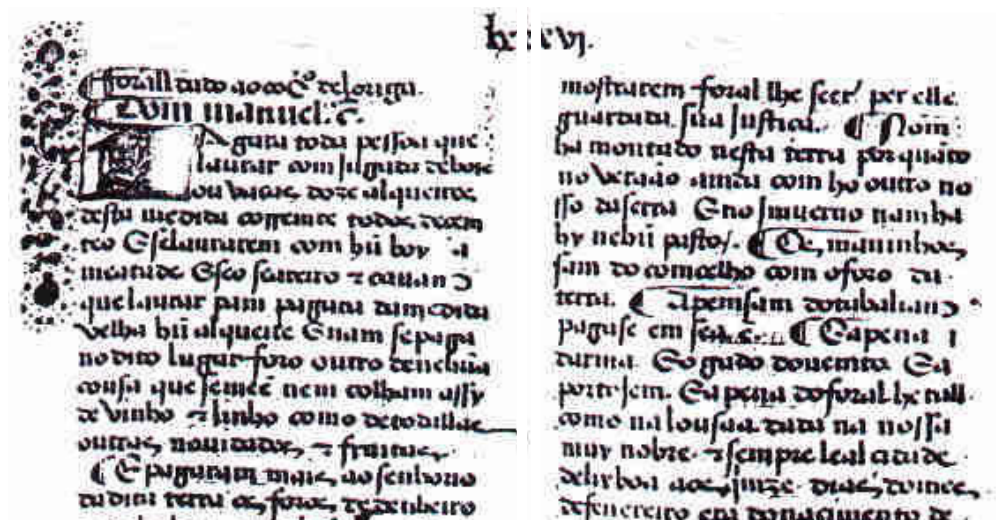 lxxxvj.
forall dado ao coçº de loriga.
Dom manuel. &c.
Paguara toda pessoa que
laurar com julguada de bois
ou vacas, doze alqueires
desta medida corrente todos decem
teo E se laurarem com hũ boy a
meatade E se o seareiro
que laurar pam paguara da medida
velha hũ alqueire E nam se paga
no dito lugar foro outro de nehũa
cousa que semeẽ nem colham assy
de vinho & linho como de todallas
outras, nouidades, & fruitas,
E paguaram mais, ao senhorio
da dita terra os, foros, de dinheiro
mostrarem foral lhe seer per elle
guardada sua Justiça. Nom
ha montado nesta terra porquãto
no veraão anda com ho outro no
sso da serra E no Jnuerno nam ha
hy nehũ pasto. Os, maninhos,
sam do concelho com o foro da
terra. A pensam do tabaliam
paguase em E a pena
darma. E o guado do uento. E a
portajem. E a pena do foral he tall
como na lousaã. dada na nossa
muy nobre & sempre leal cidade
de lixboa aos, quinze dias, domes,
de feuereiro era do nacimento de